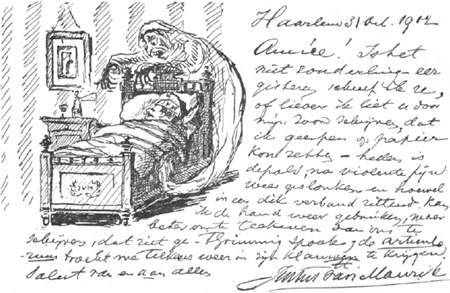 Haarlem 31 Oct. 1902
Amice! Is het
niet zonderling eer
gisteren schreef ik u,
of liever ik liet u door
mijn zoon schrijven, dat
ik geen pen op papier
kon zetten - heden is
de pols, na violente pijn
weer geslonken en hoewel
in een dik verband zittend, kan
ik de hand weer gebruiken,
beter om te teekenen dan om te
schrijven, dat ziet ge - 't spook, de
tracht me telkens weer in zijn klauwen te krijgen.
Salut van en aan allen
JVM
Justus van Maurik